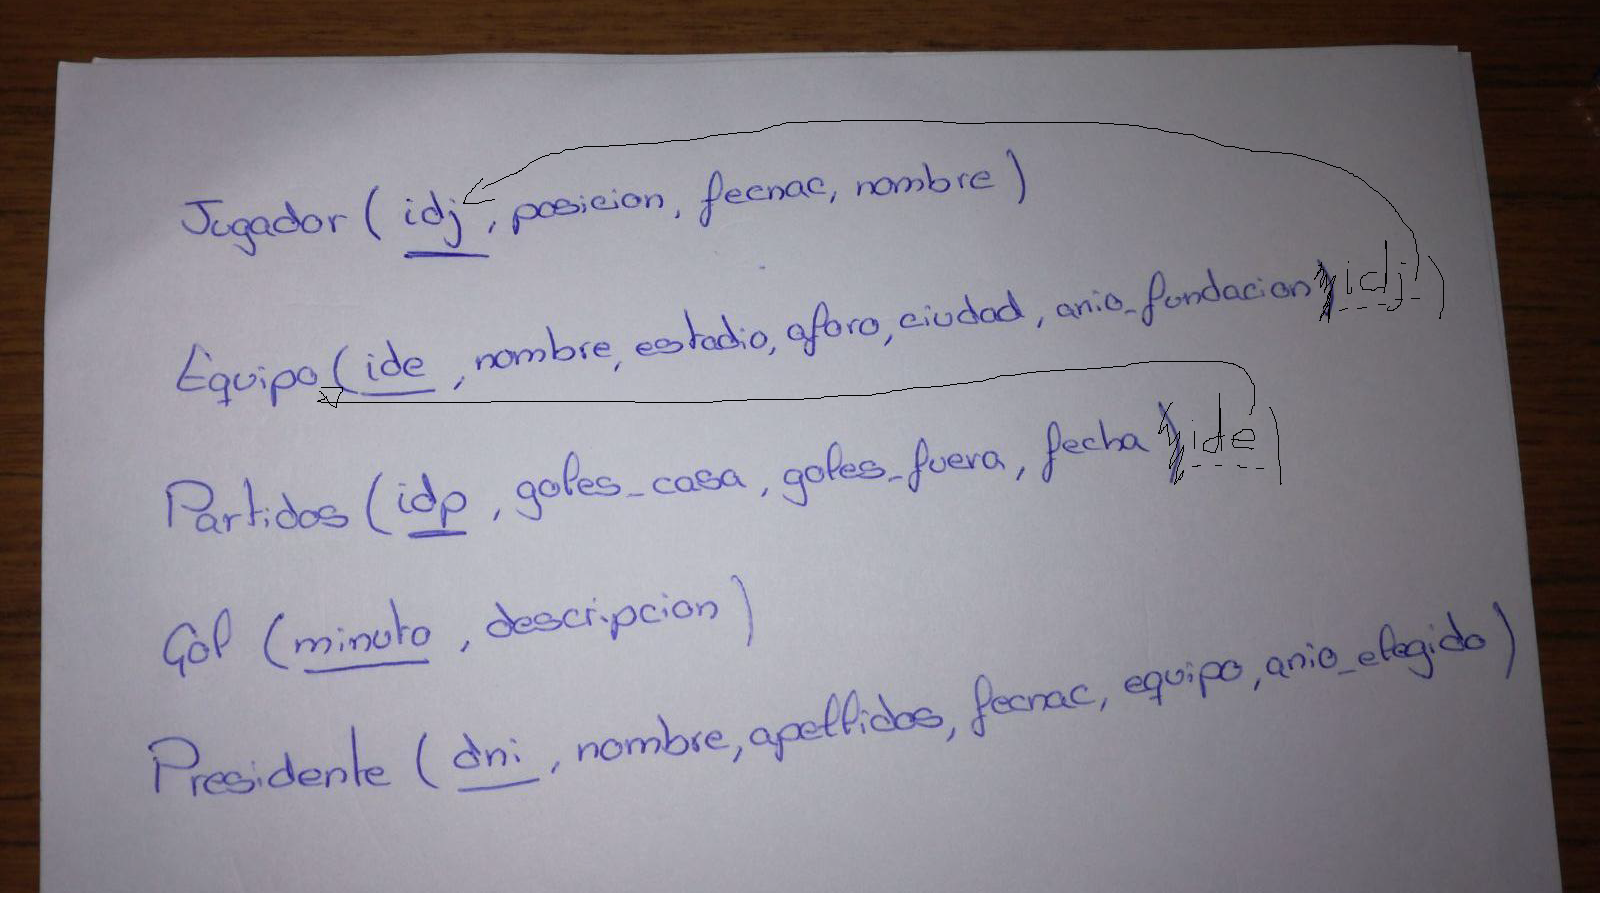 Jugador (idj, posicion, fecnac, nombre)
Equipo (ide, nombre, estadio, aforo, ciudad, anio_fundacion, idj)
Partidos (idp, goles_casa, goles_fuera, fecha, ide)
Gol (minuto, descripcion)
Presidente (dni, nombre, apellidos, fecnac, equipo, anio_elegido)